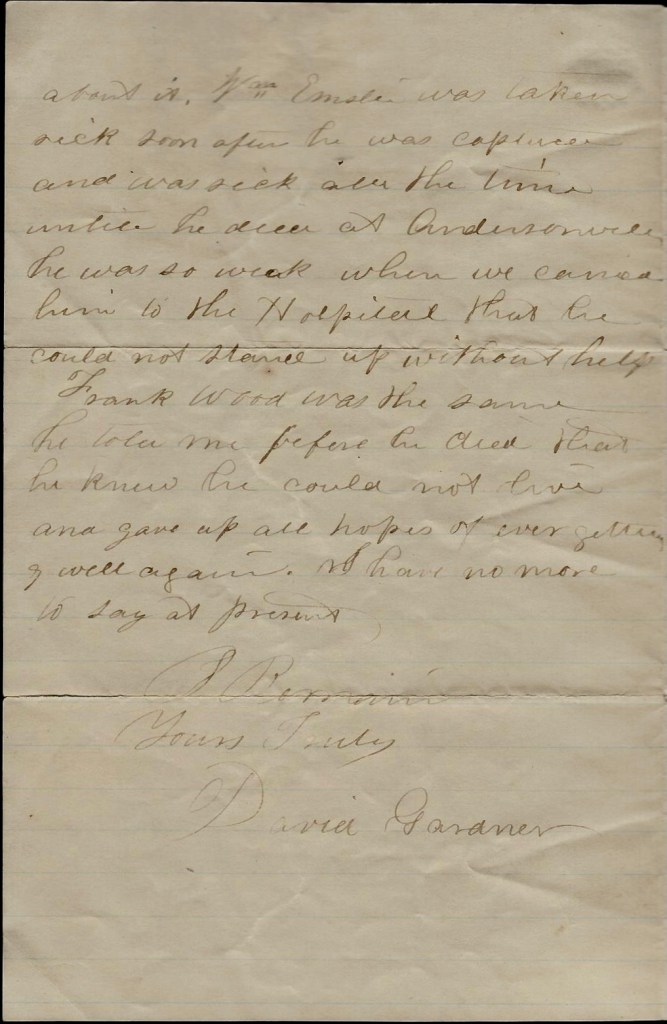 about it. Wm Emslie was taken
sick soon after he was captured
and was sick all the time
untill he died at Andersonville
he was so weak when we carried
him to the Hospital that he
could not stand up without help
Frank Wood was the same
he told me before he died that
he knew he could not live
and gave up all hopes of ever getting
well again. I have no more
to say at present
I Remain
Yours Truly
David Gardner